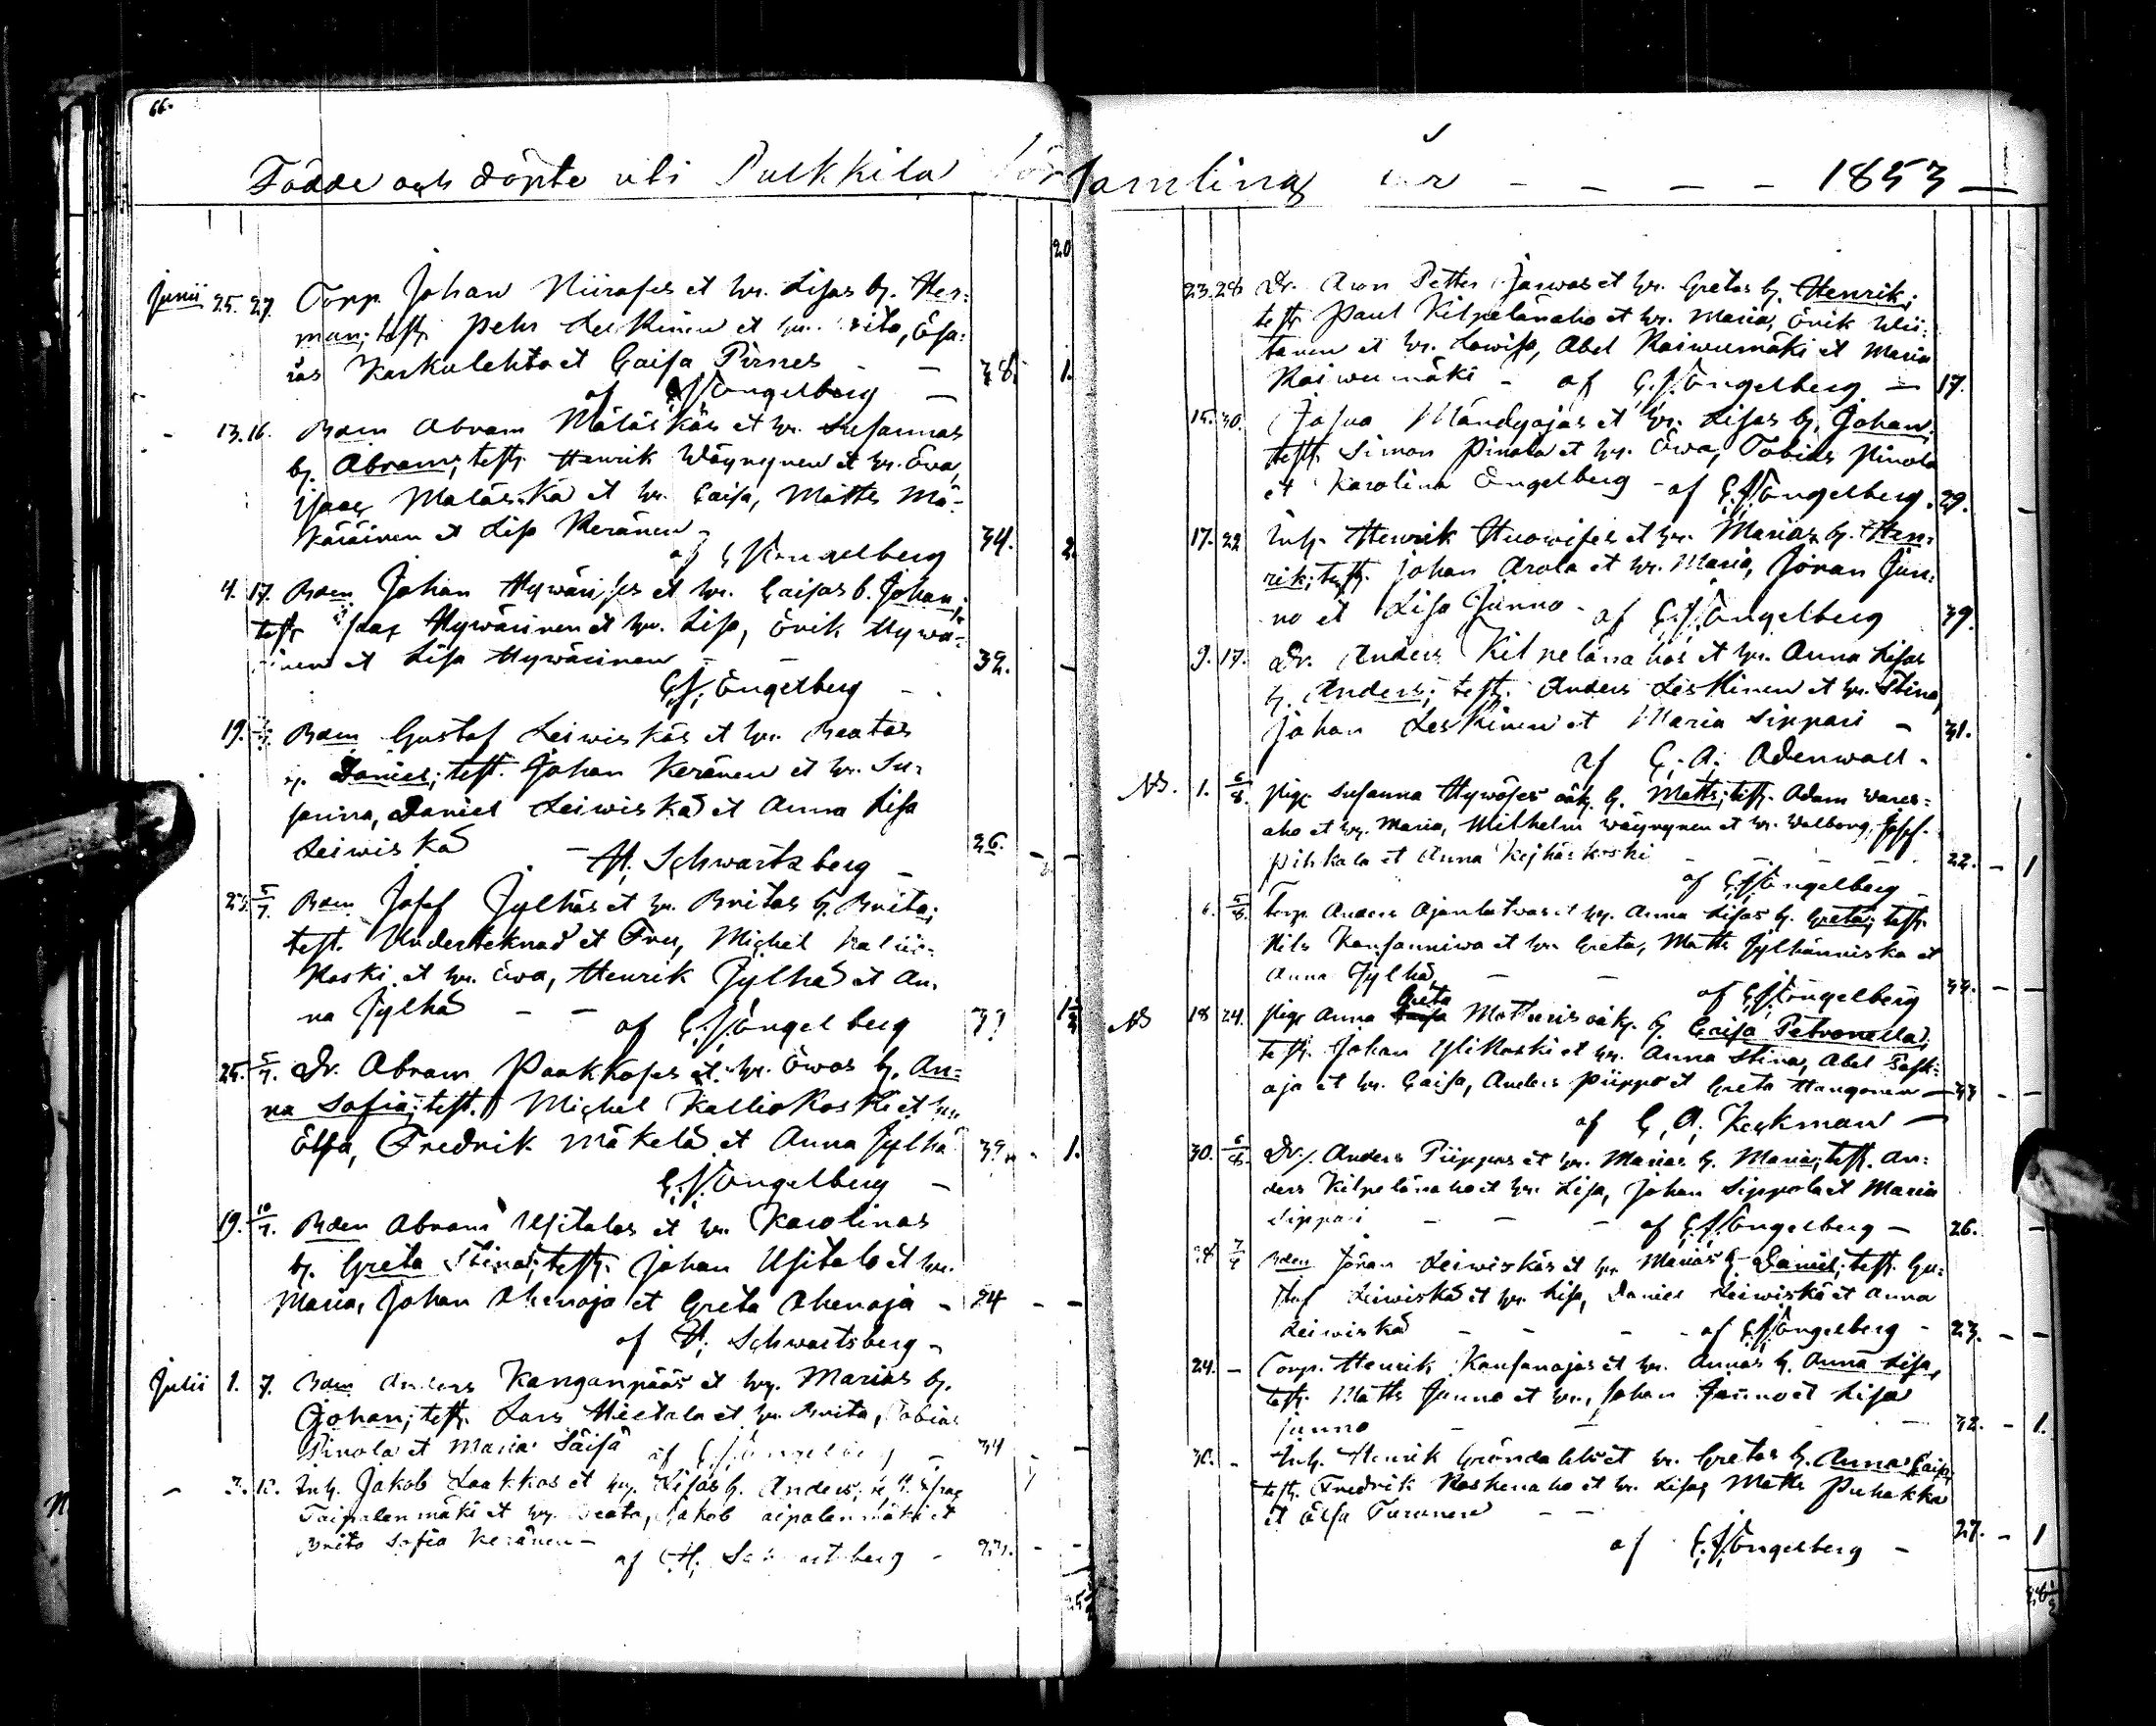 66.
Födde och döpte uti Pulkkila Församling år - - - - 1853 -
20
Junii 25. 27. Torp. Johan Niirases et hr. Lisas b. Her-
man; test. Pehr Leskinen et hr. Brita, Esa-
ias Karkulehto et Caisa Pirnes - - 38. 1.
af C.J. Engelberg -
- 13. 16. Bdem Abram Mäläskäs et hr. Susannas
b. Abram; test. Henrik Wäyrynen et hr. Eva,
Isaac Mäläskä et hr. Caisa, Matts Mä-
käräinen et Lisa Keränen - 34. 2.
af C.J. Engelberg
4. 17. Bdem Johan Hywärises et hr. Caisas b. Johan;
test. Isac Hywärinen et hr. Lisa, Erik Hywä-
rinen et Lisa Hywärinen - - 32. -
C.J. Engelberg -
19. Bdem Gustaf Leiwiskäs et hr. Beatas
b. Daniel; test. Johan Keränen et hr. Su-
sanna, Daniel Leiwiskä et Anna Lisa
Leiwiskä - 26. - -
H. Schwartzberg -
5/7. Bdem Josef Jylhäs et hr. Britas b. Brita;
test. Undertecknad et Fru, Michel Kalio-
koski et hr. Ewa, Henrik Jylhä et An-
na Jylhä - -
af C.J. Engelberg
25. 5/7. Dr. Abram Paakkoses et hr. Ewas b. An-
na Sofia; test. Michel Kalliokoski et hr.
Elsa, Fredrik Mäkelä et Anna Jylhä 1.
C.J. Engelberg -
19. 10/7. Bdem Abram Usitalos et hr. Karolinas
b. Greta Stina; test. Johan Usitalo et hr.
Maria, Johan Ahenoja et Greta Ahenoja - 24 - -
af H. Schwartsberg -
Julii 1. 7. Bdem Anders Kanganpääs et hr. Marias b.
Johan; test. Lars Hietala et hr. Brita, Tobias
Pinola et Maria Säisä af C.J. Engelberg - 34 -
- 12. Inh. Jakob Laakkos et hr. Lisas b. Anders; Isac
Taipalenmäki et hr. Beata, Jakob Taipalenmäki et
Brita Sofia Keränen -
af H. Schwartsberg - - -
23. 28 Dr. Aron Petter Jarwas et hr. Gretas b. Henrik;
test. Paul Kilpelänaho et hr. Maria, Erik Wii-
tanen et hr. Lowisa, Abel Raiwumäki et Maria
Raiwumäki - af C.J. Engelberg - 17.
15. 30. Josua Mändyojas et hr. Lisas b. Johan;
test. Simon Pinola et hr. Ewa, Tobias Pinola
et Karolina Engelberg - af C.J. Engelberg. 29. -
17. 22 Inh. Henrik Huowises et hr. Marias b. Hen-
rik; test. Johan Arola et hr. Maria, Jöran Jun-
no et Lisa Junno - af C.J. Engelberg 39.
9. 17. Dr. Anders Kilpelänahos et hr. Anna Lisas
b. Anders; test. Anders Leskinen et hr. Stina,
Johan Leskinen et Maria Sippari - 31.
af C. A. Adenwall.
NB. 1. 6/8. Pig. Susanna Hywöses oäk. b. Matts; test. Adam Wares-
aho et hr. Maria, Wilhelm Wäyrynen et hr. Walborg, Josef
Pihkala et Anna - - - - 22. - 1
af C.J. Engelberg -
6. 5/8. Torp. Anders Ajanlatwas et hr. Anna Lisas b. Greta; test.
Nils Kansanniwa et hr. Greta, Matts Jylhänniska et
Anna Jylhä - - - -
af C.J. Engelberg
NB 18 24. Pig. Anna Greta oäk. b. Caisa Petronella;
test. Johan Ylikoski et hr. Anna Stina, Abel
oja et hr. Caisa, Anders Piippo et Greta Hangonen - 33 - -
af C. A. Keckman -
30. 6/8. Dr. Anders Piippos et hr. Marias b. Maria; test. An-
ders Kilpelänaho et hr. Lisa, Johan Sippola et Maria
Sippari - - - af C.J. Engelberg - 26. -
Bdem Jöran Leiwiskäs et hr. Marias b. Daniel; test. Gu-
staf Leiwiskä et hr. Lisa, Daniel Leiwiskä et Anna
Leiwiskä - - - - af C.J. Engelberg - 23. - -
24. - Torp. Henrik Kansanojas et hr. Annas b. Anna Lisa,
test. Matts Junno et hr., Johan Junno et Lisa
Junno - - - - 32. - 1.
30. - Inh. Henrik Gröndahls et hr. Gretas b. Anna Caisa,
test. Fredrik Koskenaho et hr. Lisa, Matts Puhakka
et Elsa Turunen - -
af C.J. Engelberg - 27. - 1